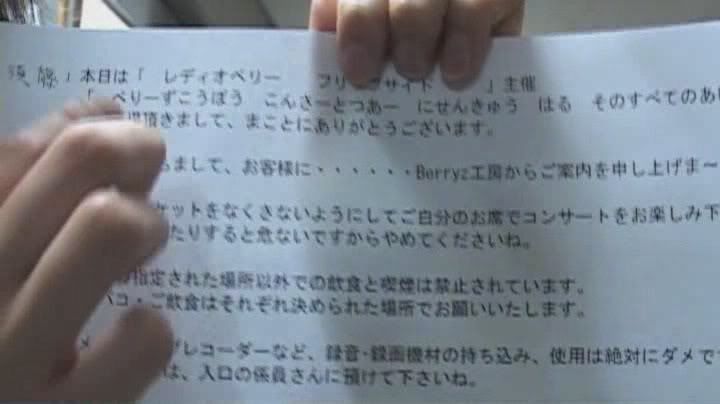 須藤」本日は「　レディオベリー　　フリップサイド　　」主催
「　べりーずこうぼう　こんさーとつあー　にせんきゅう　はる　そのすべての
頂きまして、まことにありがとうございます。
まして、お客様に・・・・・・Berryz工房からご案内を申し上げま〜
ケットをなくさないようにしてご自分のお席でコンサートをお楽しみ下
たりすると危ないですからやめてくださいね。
指定された場所以外での飲食と喫煙は禁止されています。
バコ・ご飲食はそれぞれ決められた場所でお願いいたします。
レコーダーなど、録音・録画機材の持ち込み、使用は絶対にダメで
は、入口の係員さんに預けて下さいね。